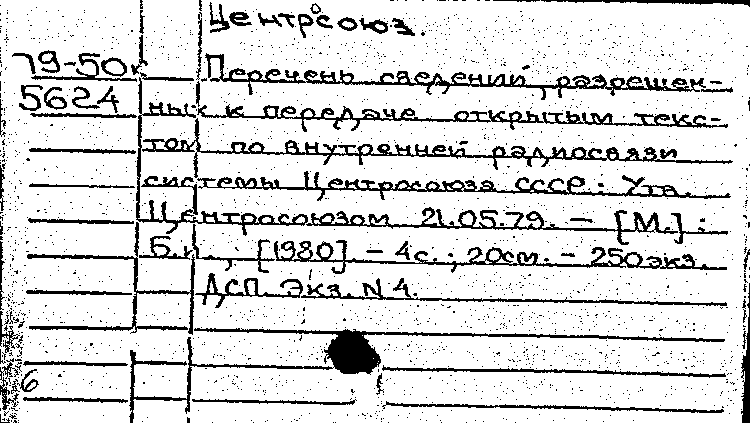 Центросоюз.
79-50к Перечень сведений, разрешен-
5624 ных к передаче открытым текс-
том по внутренней радиосвязи
системы Центросоюза СССР: Утв.
Центросоюзом 21.05.79. - [М.] :
Б.и., [1980]. - 4с.; 20см. - 250экз.
ДСП. Экз. N 4.
6